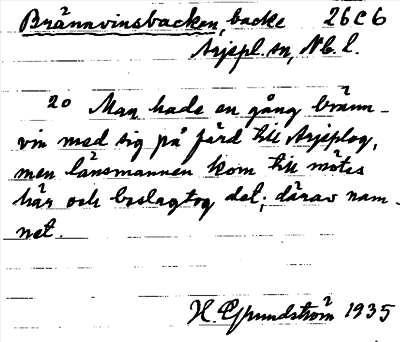 Brännvinsbacken, backe 26C6
Arjepl. sn, Nb. l.
20 Man hade en gång bränn-
vin med sig på färd till Arjeplog,
men länsmannen kom till mötes
här och beslagtog det; därav nam-
net.
H. Grundström 1935